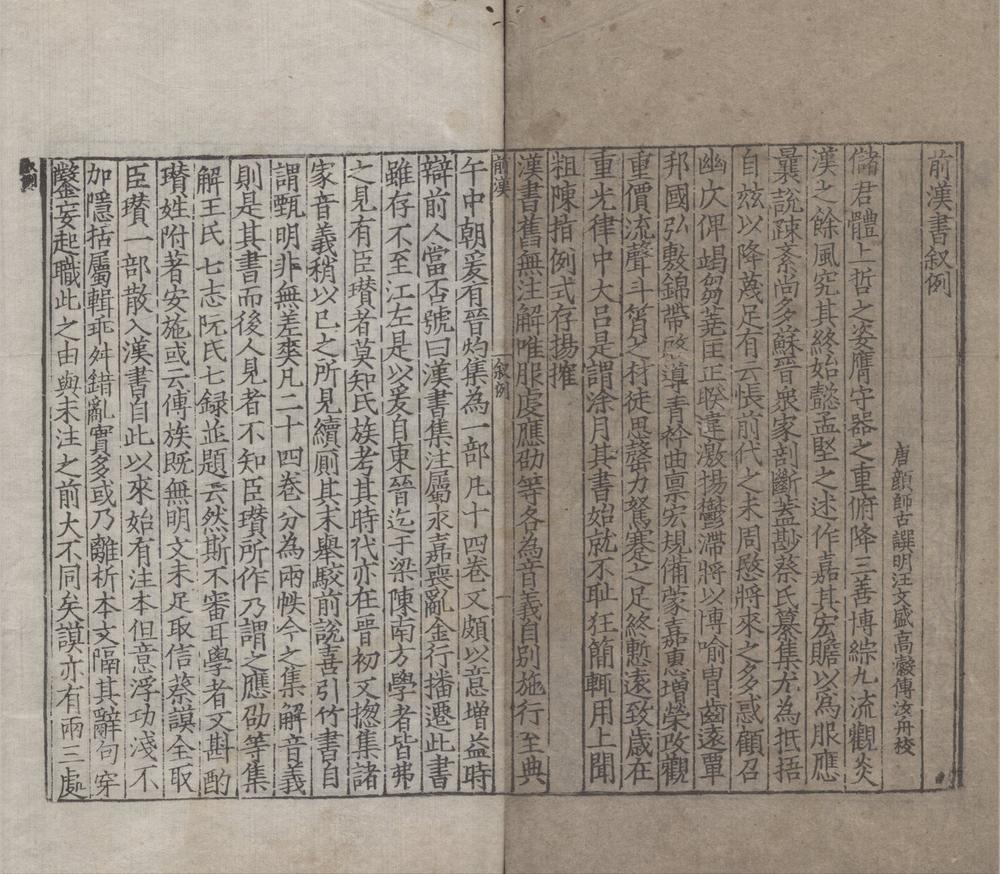 前漢書叙例
唐顔師古譔明汪文盛高瀫傅汝舟校
儲君體上哲之姿膺守器之重俯降三善博綜九流觀炎
漢之餘風究其終始懿孟堅之述作嘉其宏贍以爲服應
曩説疎紊尚多蘇晉衆家剖斷蓋尠蔡氏纂集尤爲抵捂
自兹以降蔑足有云悵前代之未周愍將來之多惑顧召
幽仄俾竭芻蕘匡正睽違激揚鬱滯將以博喻胄齒遠覃
邦國弘敷錦帶啓導青衿曲禀宏規備蒙嘉惠增榮改觀
重價流聲斗筲之材徒思罄力駑蹇之足終慙遠致歲在
重光律中大吕是謂涂月其書始就不耻狂簡輒用上聞
粗陳指例式存揚搉
漢書舊無注解唯服虔應劭等各為音義自别施行至典
前漢
叙例
一
午中朝爰有晉灼集為一部凡十四卷又頗以意增益時
辯前人當否號曰漢書集注屬永嘉喪亂金行播遷此書
雖存不至江左是以爰自東晉迄于梁陳南方學者皆弗
之見有臣瓉者莫知氏族考其時代亦在晉初又揔集諸
家音義稍以已之所見續厠其末舉駁前説喜引竹書自
謂甄明非無差爽凡二十四卷分為兩帙今之集解音義
則是其書而後人見者不知臣瓉所作乃謂之應劭等集
解王氏七志阮氏七録並題云然斯不審耳學者又斟酌
瓉姓附著安施或云傅族既無明文未足取信蔡謨全取
臣瓉一部散入漢書自此以來始有注本但意浮功淺不
加隱括屬輯乖舛錯亂實多或乃離析本文隔其辭句穿
鑿妄起職此之由與未注之前大不同矣謨亦有兩三處